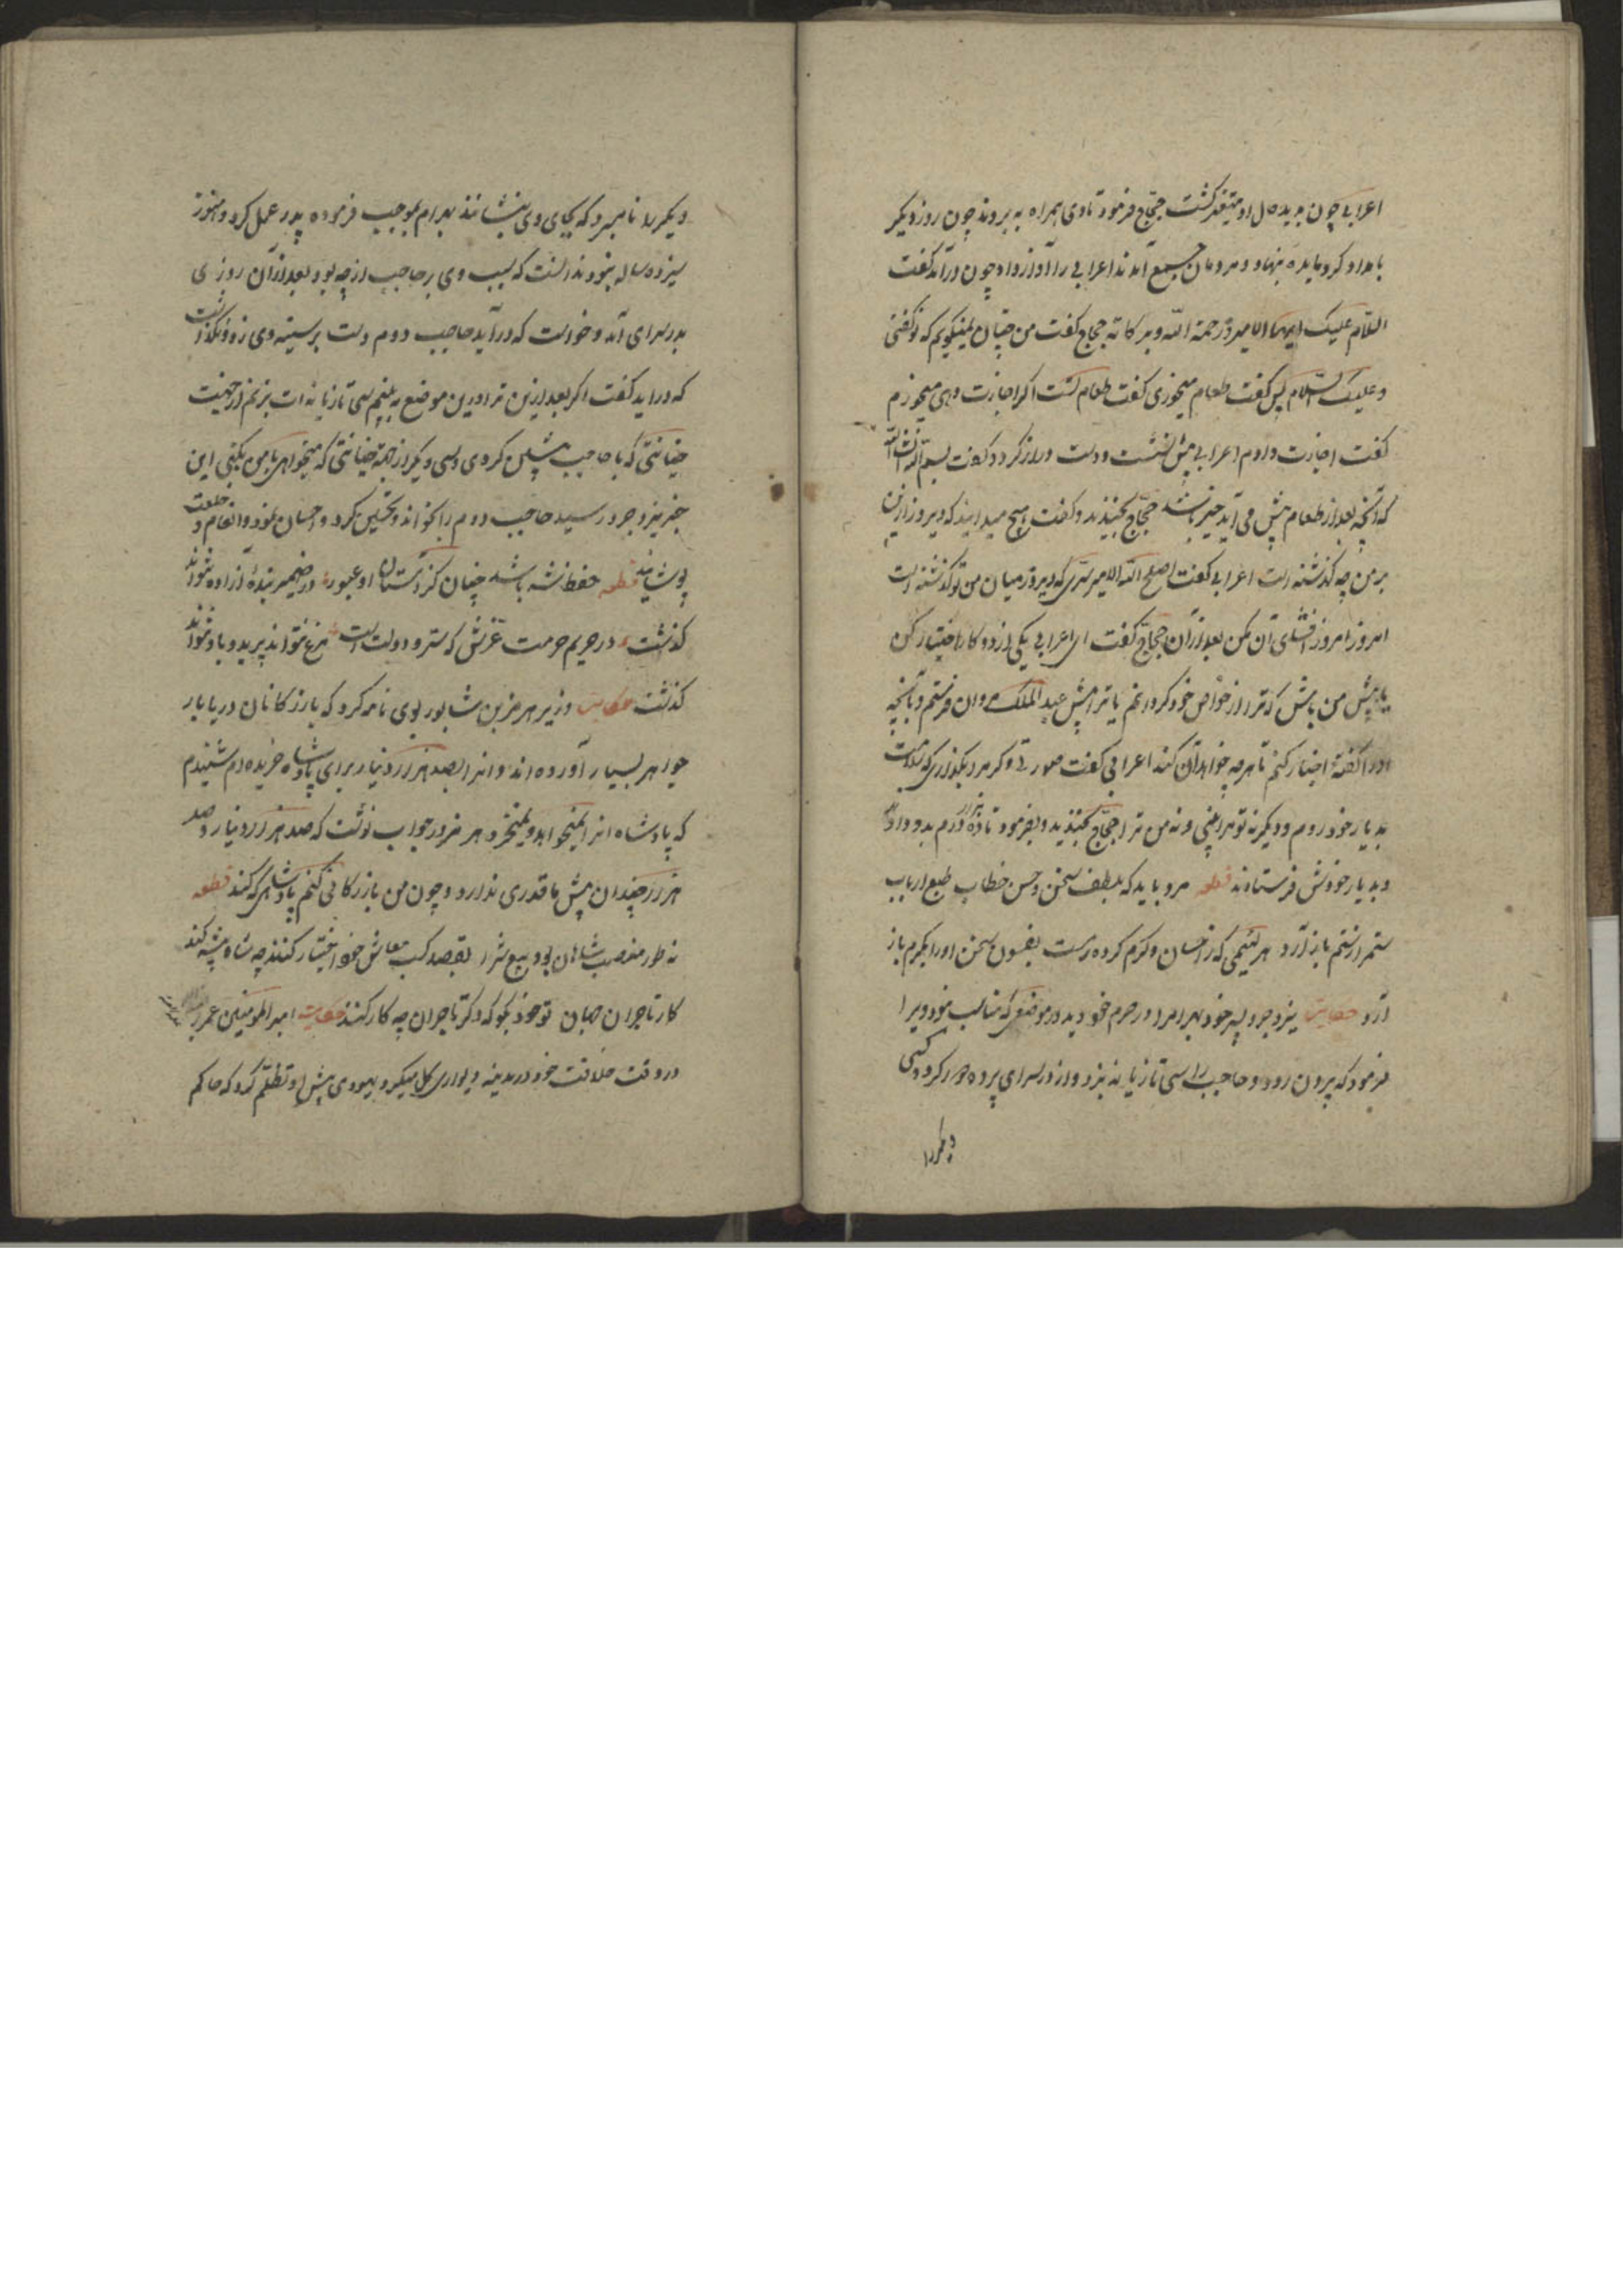 اعرابی چون بدید حال او متغیر گشت حجاج فرمود تا وی همراه به بروند چون روز دیگر
بامداد کرد مایده بنهاد و مردمان جمع آمدند اعرابی را آواز داد چون درآمد گفت
السّلام علیک ایها الامیر و رحمة الله و برکاته حجاج گفت من چنان نمیگویم که تو گفتی
و علیک السّلام پس گفت طعام میخوری گفت طعام تست اگر اجازت دهی میخورم
گفت اجازت دادم اعرابی پیش نشست و دست دراز کرد و گفت بسم الله انشاالله
که آنچه بعد از طعام پیش می آید خیر باشد حجاج بخندید و گفت هیچ میدانید که دیروز ازین
بر من چه گذشته است اعرابی گفت اصلح الله الامیر سرّی که دیروز میان من و تو گذشته است
امروز افشای آن مکن بعد از آن حجاج گفت ای اعرابی یکی از دو کار اختیار کن
یا پیش من باش که ترا از خواص خود گردانم یا ترا پیش عبد الملک مروان فرستم و بآنچه
اورا گفته اختیار کنم تا هر چه خواهد آن کند اعرابی گفت صورتی دیگر هم بگذاری که سلامت
بدیار خود روم و دیگر نه تو مرا بینی و نه من ترا حجاج بخندید و بفرمود تا ده هزار درم بدو دادند
و بدیار خودش فرستادند قطعه مرد باید که بلطف سخن و حسن خطاب طبع ارباب
ستم را ز ستم باز آرد هر لئیمی که ز احسان و کرم کرده رست بفسون سخن او را بکرم باز
آرد حکایت یزدجرد پسر خود بهرام را در حرم خود دید در موضعی که مناسب نبود ویرا
فرمود که بیرون رود و حاجب را سی تازیانه بزد و از در سرای پرده دور کرد و کسی
دیگر را
دیگر را نامبرد که بجای وی بنشانند بهرام بموجب فرموده پدر عمل کرد و هنوز
سیزده ساله بود ندانست که سبب وی بر حاجب از چه بود بعد از آن روزی
بدر سرای آمد و خواست که درآید حاجب دوم دست بر سینه وی زد و نگذاشت
که درآید گفت اگر بعد ازین ترا درین موضع به بینم سی تازیانه ات بزنم از جهت
خیانتی که با حاجب پیشین کردی و سی دیگر از جهة خیانتی که میخواهی با من بکنی این
خبر بیزدجرد رسید حاجب دوم را بخواند و تحسین کرد و احسان نمود و انعام و خلعت
پوشانید قطعه حفظ شه باشد چنان کز دستان او عبور در ضمیر بندهٔ آزاده نتواند
گذشت در حریم حرمت عزش که ستر دولت است مرغ نتواند پرید و باد نتواند
گذشت حکایت وزیر هرمز بن شاپور بوی نامه کرد که بازرگانان دریا بار
جواهر بسیار آورده اند و انرا بصد هزار دینار برای پادشاه خریده ام شنیدم
که پادشاه انرا نمیخواهد و نمیخرد هرمز در جواب نوشت که صد هزار دینار و صد
هزار چندان پیش ما قدری ندارد و چون من بازرگانی کنم پادشاهی که کند قطعه
نه طور منصب شاهان بود بیع و شرا بقصد کسب معاش خود اختیار کنند چه شاه پیشه کند
کار تاجران جهان تو خود بگو که دگر تاجران چه کار کنند حکایت امیر المؤمنین عمر
در وقت خلافت خود در مدینه دیواری گل میکرد یهودی پیش او تظلم کرد که حاکم